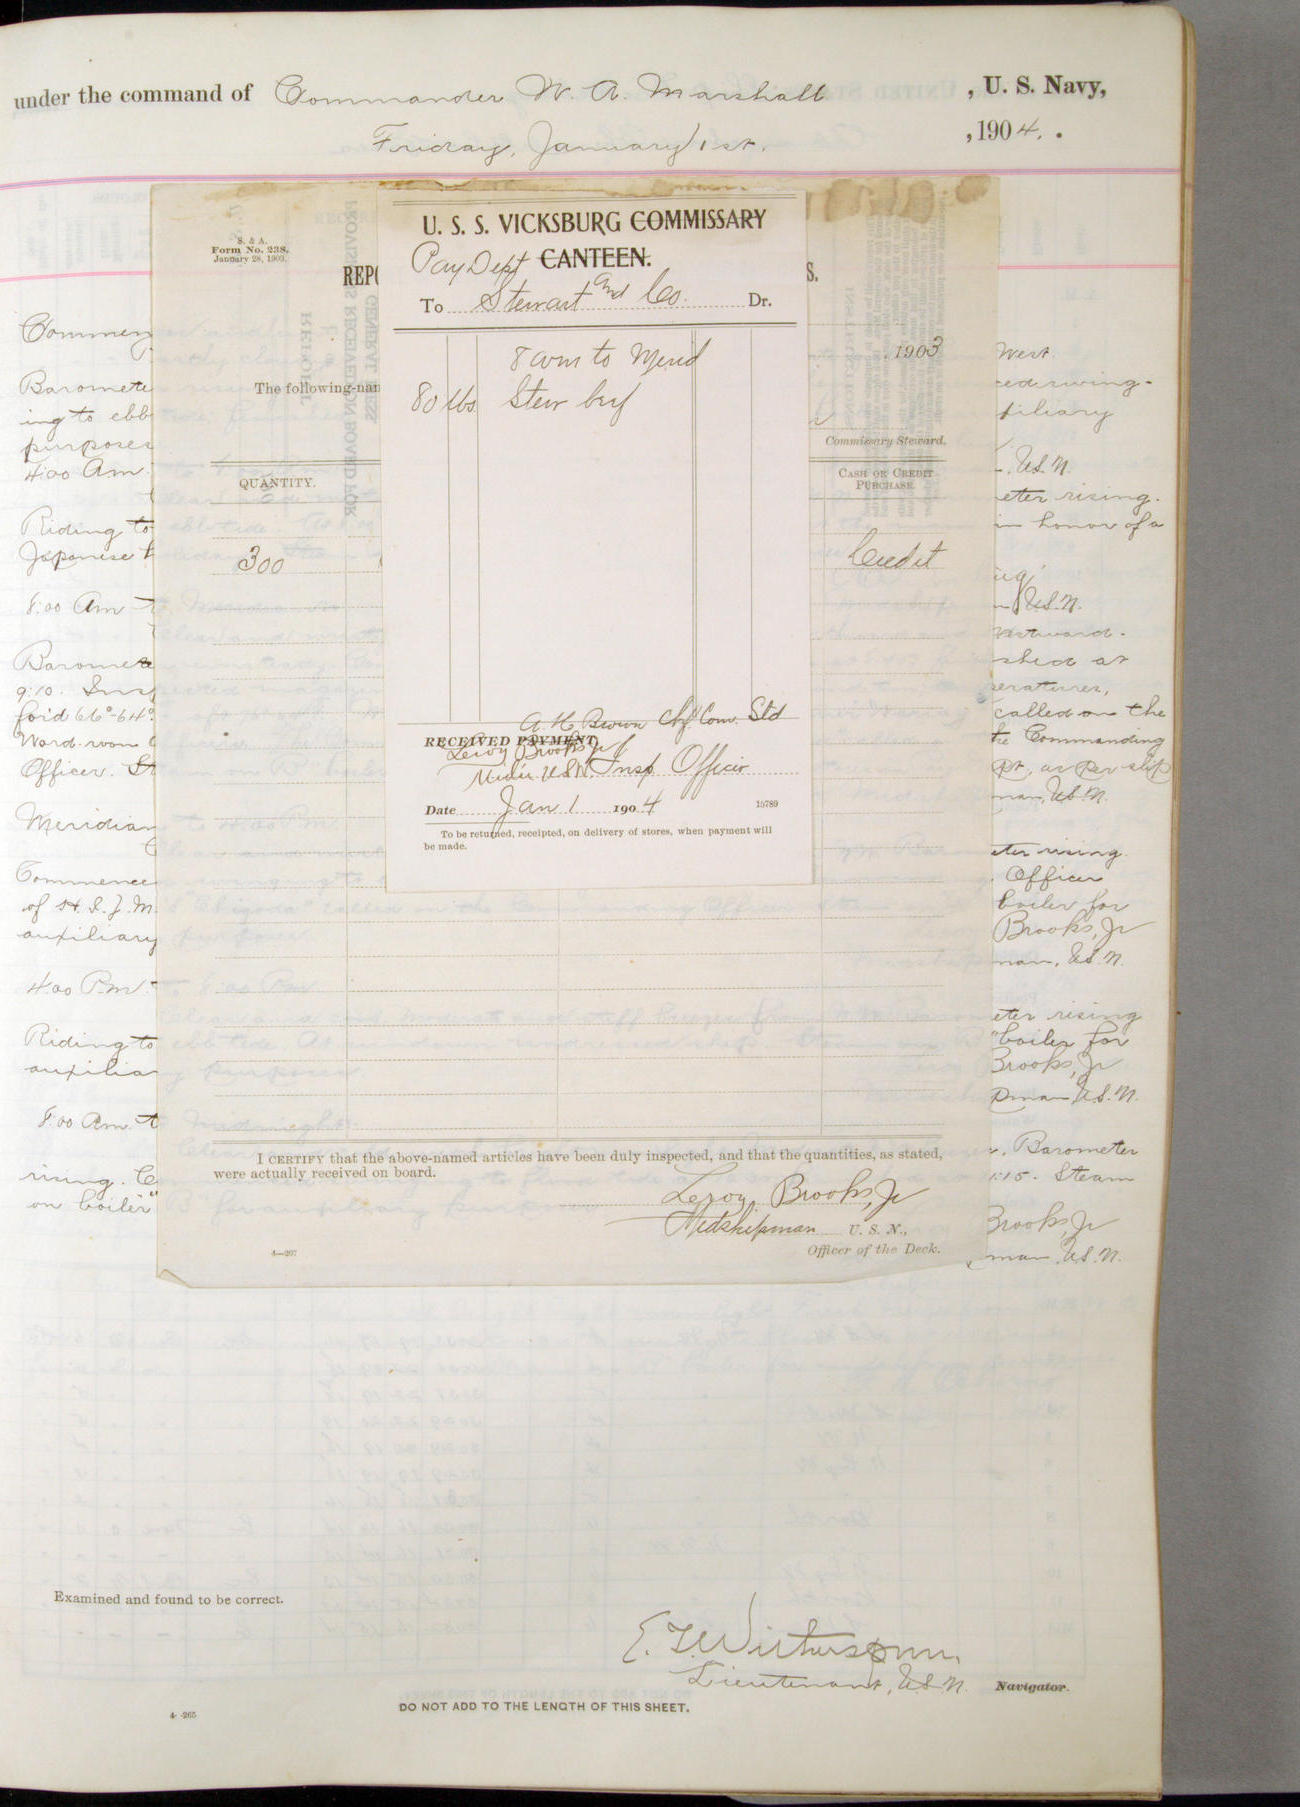 under the command of Commander W. A. Marshall , U. S. Navy,
Friday, January 1st. , 1904.
S. & A.
Form No. 238.
January 28, 1903.
REPO
S.
1903
The following-nam
Commissary Steward.
QUANTITY.
CASH OR CREDIT
PURCHASE.
300
Credit
U. S. S. VICKSBURG COMMISSARY
Pay Dept CANTEEN.
To Stewart and Co. Dr.
8 am to Merid
80 lbs. Stew beef
A. H. Brown Chf Com. Std
RECEIVED PAYMENT,
Leroy Brooks Jr
Midn. U.S.N. Insp Officer
Date Jan 1 1904
15789
To be returned, receipted, on delivery of stores, when payment will
be made.
Commen
West.
Baromete
ing to ebb
xiliary
purposes
4:00 Am.
U.S.N.
eter rising.
Riding to
in honor of a
Japanese h
8:00 Am t
U.S.N.
westward.
Barome
shed at
9:10. Insp
peratures,
ford 66°-64°
called on the
Ward-room
the Commanding
Officer. St
pt, as per slip
man, U.S.N.
Meridian
eter rising.
Commence
Officer
of H. I. J. M.
boiler for
auxiliary
Brooks, Jr
man, U.S.N.
4:00 P.m.
eter rising
Riding to
"boiler for
auxilia
Brooks, Jr
pman, U.S.N.
8:00 Am. t
Barometer
rising.
1:15. Steam
on boiler "
Brooks, Jr
man, U.S.N.
I CERTIFY that the above-named articles have been duly inspected, and that the quantities, as stated,
were actually received on board.
Leroy Brooks, Jr
Midshipman U. S. N.,
Officer of the Deck.
4—207
Examined and found to be correct.
E. T. Witherspoon,
Lieutenant, U.S.N. Navigator.
DO NOT ADD TO THE LENGTH OF THIS SHEET.
4-265